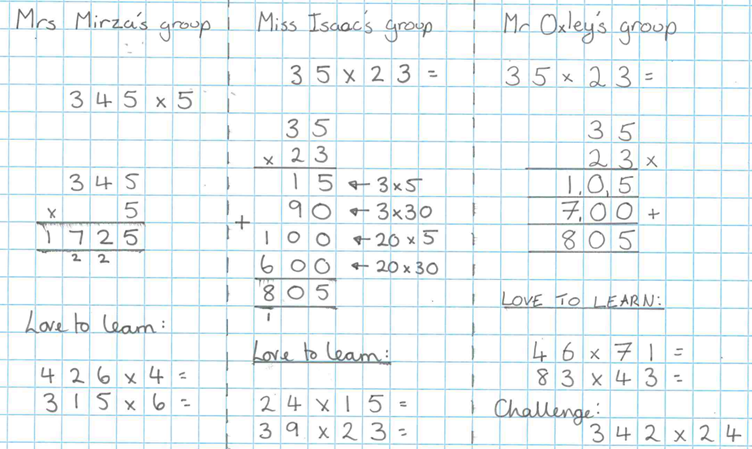 Mrs Mirza's group
345 × 5
345
× 5
1725
2 2
Love to learn:
426 × 4 =
315 × 6 =
Miss Isaac's group
35 × 23 =
35
× 23
15 ← 3×5
+ 90 ← 3×30
100 ← 20×5
600 ← 20×30
805
1
Love to learn:
24 × 15 =
39 × 23 =
Mr Oxley's group
35 × 23 =
35
23 ×
1,0,5
7,00 +
805
LOVE TO LEARN:
46 × 71 =
83 × 43 =
Challenge:
342 × 24